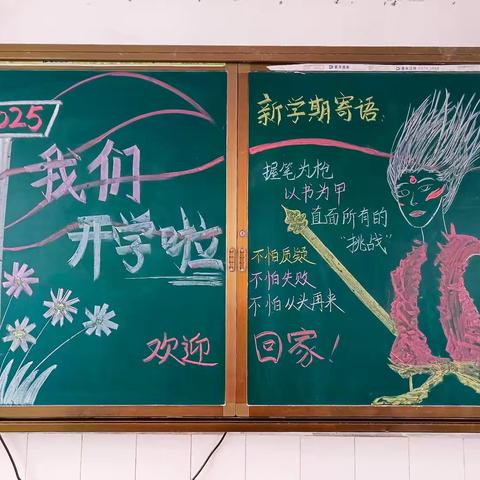 2025
我们
开学啦
欢迎
新学期寄语:
握笔为枪
以书为甲
直面所有的
“挑战”
不怕质疑
不怕失败
不怕从头再来
回家！